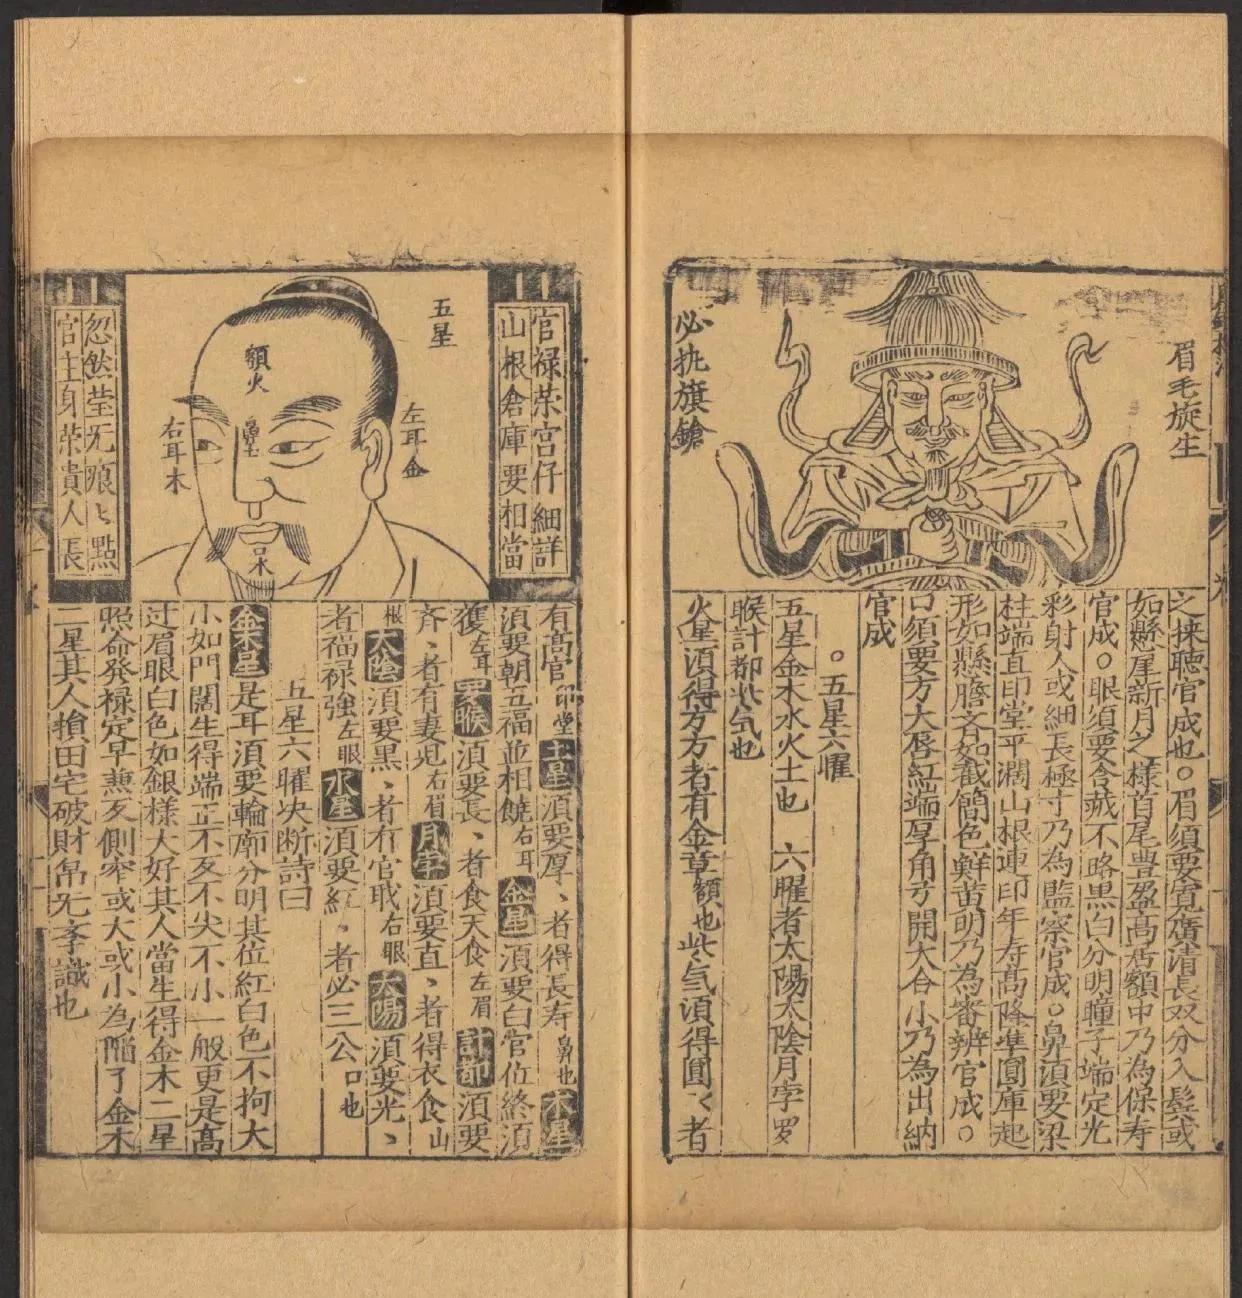 眉毛旋生
必執旗鎗
之採聽官成也○眉須要寬廣清長双分入鬂或
如懸犀新月之樣首尾豊盈高居額中乃為保寿
官成○眼須要含藏不露黒白分明瞳子端定光
彩射人或細長極寸乃為監察官成○鼻須要梁
柱端直印堂平濶山根連印年寿高隆準圓庫起
形如懸膽齐如截筒色鮮黄明乃為審辨官成○
口須要方大唇紅端厚角弓開大合小乃為出納
官成
○五星六曜
五星金木水火土也 六曜者太陽太陰月孛罗
睺計都炁也
火星須得方方者有金章額也紫氣須得圓〻者
官禄荣宫仔細詳
山根倉庫要相當
五星
額火
鼻土
左耳金
右耳木
口水
忽然瑩无痕〻點
官主身荣貴人長
有高官印堂土星須要厚、者得長寿鼻也木星
須要朝五福並相饒右耳金星須要白官位終須
獲左耳罗睺須要長、者食天食左眉計都須要
斉、者有妻児右眉月孛須要直、者得衣食山
根太陰須要黒、者有官职右眼太陽須要光、
者福禄強左眼水星須要紅、者必三公口也
五星六曜决断詩曰
金木星是耳須要輪廓分明其位紅白色不拘大
小如門闊生得端正不反不尖不小一般更是高
过眉眼白色如銀様大好其人當生得金木二星
照命發禄定早䓁反側窄或大或小為陷了金木
二星其人損田宅破財帛无孝識也